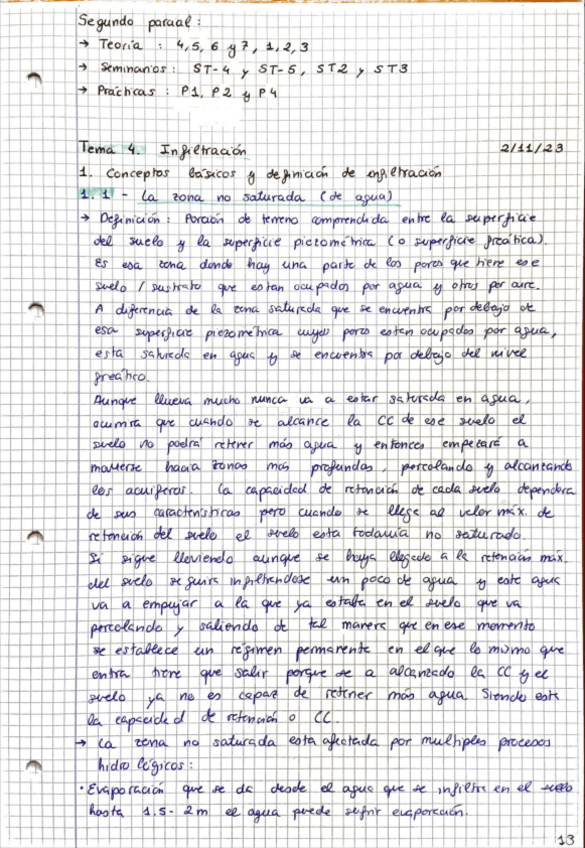 Segundo parcial :
→ Teoría : 4, 5, 6 y 7, 1, 2, 3
→ Seminarios : ST-4 y ST-5, ST2 y ST3
→ Prácticas : P1, P2 y P4
Tema 4. Infiltración 2/11/23
1. Conceptos básicos y definición de infiltración
1. 1 - La zona no saturada (de agua)
→ Definición : Porción de terreno comprendida entre la superficie
del suelo y la superficie piezométrica (o superficie freática).
Es esa zona donde hay una parte de los poros que tiene ese
suelo / sustrato que estan ocupados por agua y otros por aire.
A diferencia de la zona saturada que se encuentra por debajo de
esa superficie piezométrica cuyos poros estan ocupados por agua,
esta saturada en agua y se encuentra por debajo del nivel
freático.
Aunque llueva mucho nunca va a estar saturada en agua,
ocurrira que cuando se alcance la CC de ese suelo el
suelo no podrá retener más agua y entonces empezará a
moverse hacia zonas más profundas, percolando y alcanzando
los acuíferos. La capacidad de retención de cada suelo dependera
de sus características pero cuando se llega al valor máx. de
retención del suelo el suelo esta todavia no saturado.
Si sigue lloviendo aunque se haya llegado a la retención máx.
del suelo seguira infiltrandose un poco de agua y este agua
va a empujar a la que ya estaba en el suelo que va
percolando y saliendo de tal manera que en ese momento
se establece un régimen permanente en el que lo mismo que
entra tiene que salir porque se a alcanzado la CC y el
suelo ya no es capaz de retener más agua siendo esta
la capacidad de retención o CC.
→ La zona no saturada esta afectada por multiples procesos
hidrológicos :
· Evaporación que se da desde el agua que se infiltra en el suelo
hasta 1.5 - 2 m el agua puede sufrir evaporación.
13